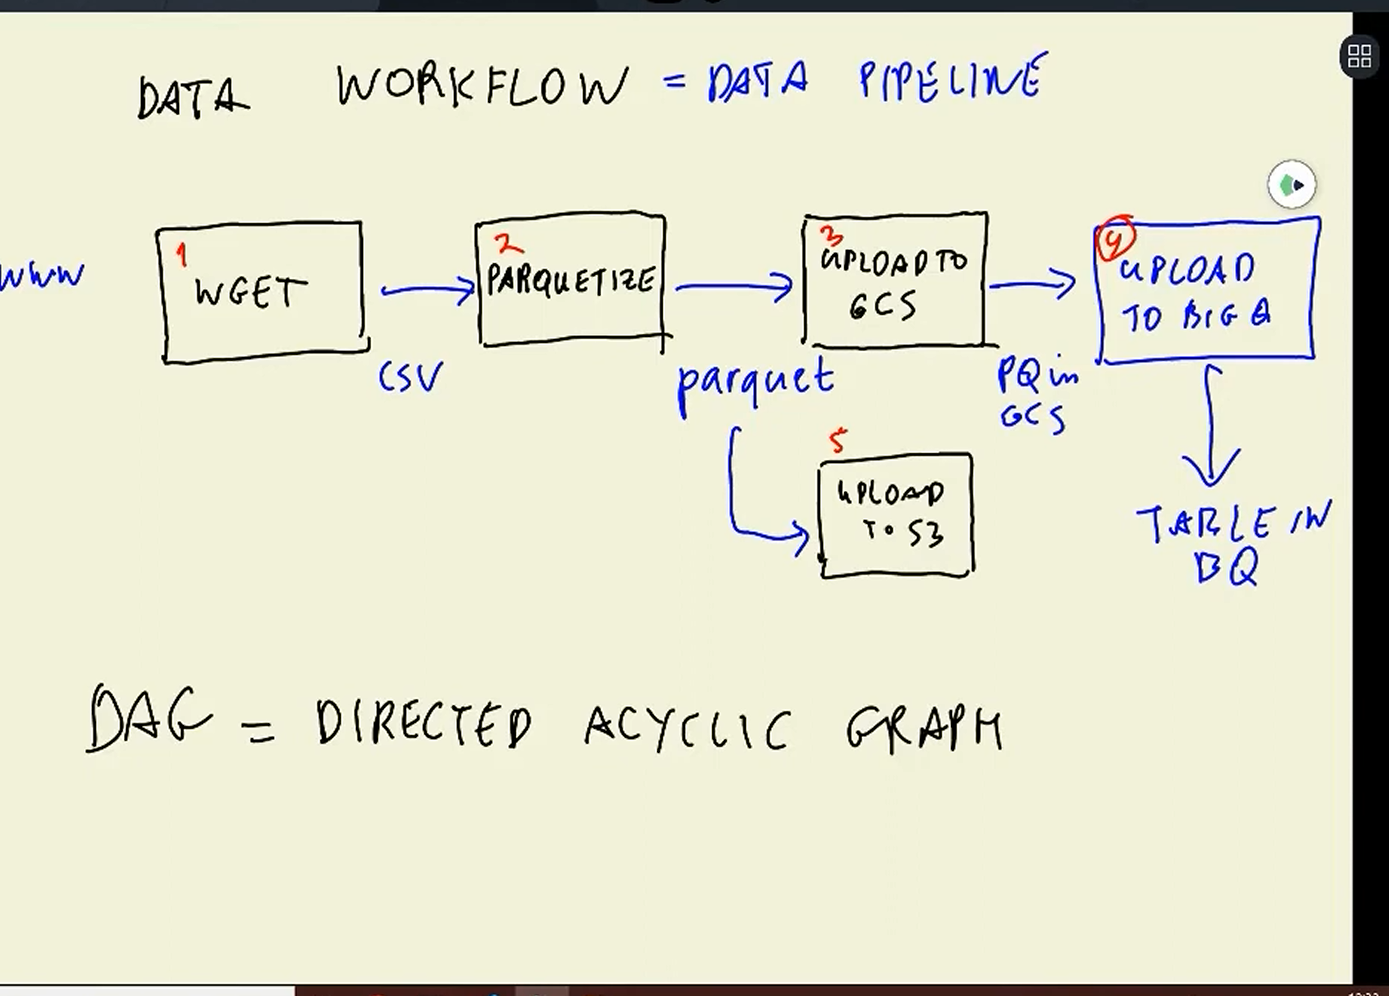 DATA WORKFLOW = DATA PIPELINE
WWW
1
WGET
CSV
2
PARQUETIZE
parquet
3
UPLOAD TO
GCS
PQ in
GCS
4
UPLOAD
TO BIG Q
TABLE IN
BQ
5
UPLOAD
TO S3
DAG = DIRECTED ACYCLIC GRAPH